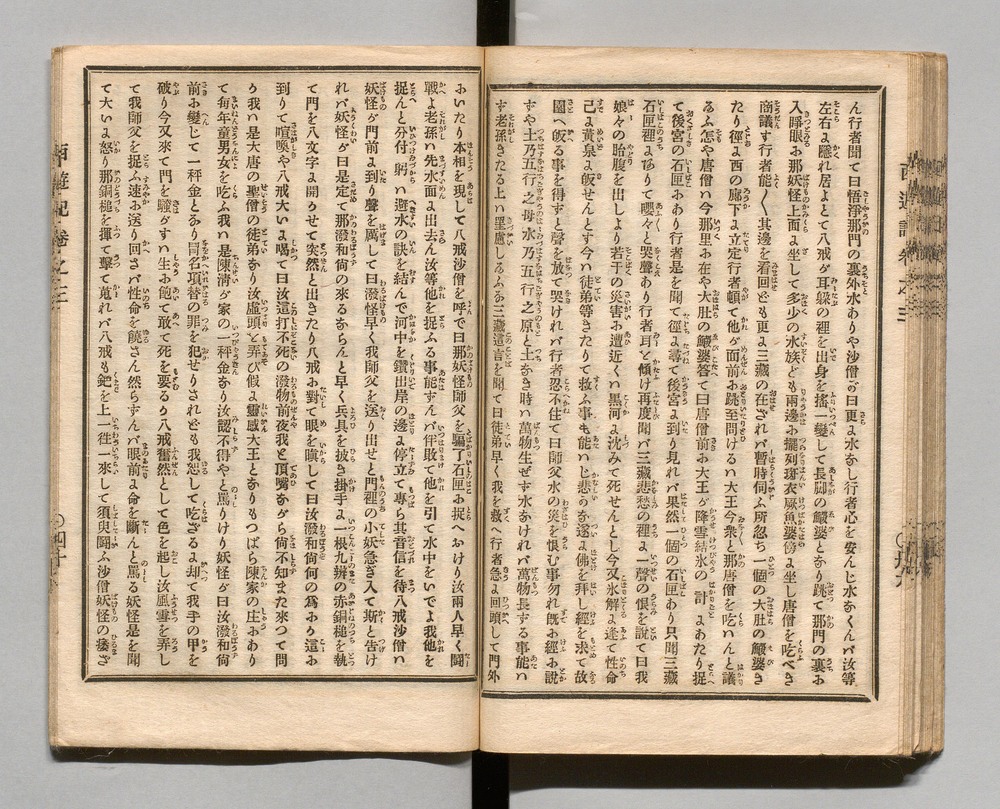 ん行者聞て曰悟淨那門の裏外水ありや沙僧が曰更ょ水なし行者心を安んじ水なくんバ汝等
左右ょ隱れ居よとて八戒ダ耳躱の裡を出身を搖一變して長脚の鰕婆となり跳て那門の裏お
入睜眼お那妖怪上面ょ坐して多少の水族ども兩邊お擺列斑衣厥魚婆傍ょ坐し唐僧を吃べき
商議す行者能く其邊を看回ども更ょ三藏の在ざれバ暫時伺ふ所忽ち一個の大肚の鰕婆き
たり徑ょ西の廊下ょ立定行者頓て他ダ面前お跳至問けるハ大王合衆と那唐僧を吃いんと議
るふ怎や唐僧ハ今那里お在や大肚の鰕婆答て曰唐僧前お大王ダ降雪結氷の計ょあたり捉
て後宮の石匣おあり行者是を聞て徑ょ尋て後宮ょ到り見れバ果然一個の石匣あり只聞三藏
石匣裡ょありて嚶々と哭聲あり行者耳と傾け再度聞バ三藏悲愁の裡ょ一聲の恨を說て曰我
娘々の胎腹を出しより若干の災害お遭近く黒河ょ沈みて死せんとし今又氷解ょ逢て性命
己ょ黄泉ょ皈せんとす今ハ徒弟等きたりて救ふ事も能いじ悲しいかな遂ょ佛を拜し經を求て故
園へ皈る事を得ずと聲を放て哭けれバ行者忍不住て曰師父水の災を恨む事勿れ既お經お說
ずや土乃五行之母水乃五行之原と土なき時ハ萬物生ぜず水なけれバ萬物長ずる事能い
ず老孫きたる上ハ罣慮しるふな三藏這言を聞て曰徒弟早く我を救へ行者急ょ回頭して門外
おいたり本相を現して八戒沙僧を呼で曰那妖怪師父を騙了石匣お捉へおけり汝兩人早く鬪
戰ょ老孫ハ先水面ょ出去らん汝等他を捉ふる事能ずんバ佯敗て他を引て水中をいでよ我他を
捉んと分付躬ハ避水の訣を結んで河中を鑽出岸の邊ょ停立て專ら其音信を待八戒沙僧ハ
妖怪ダ門前ょ到り聲を厲して曰潑妖怪早く我師父を送り出せと門裡の小妖急ぎ入て斯と告け
れバ妖怪ダ曰是定て那潑和尙の來るならんと早く兵具を披き掛手ょ一根九瓣の赤銅槌を執
て門を八文字ょ開うせて突然と出きたり八戒お對て眼を瞋して曰汝潑和尙何の爲おう這お
到りて喧喚や八戒大いょ喝て曰汝這打不死の潑物前夜我と頂嘴ながら尙不知また來つて問
う我ハ是大唐の聖僧の徒弟なり汝虛頭と弄び假ょ靈感大王となりもつばら陳家の庄おあり
て每年童男女を吃ふ我ハ是陳淸ダ家の一秤金なり汝認不得やと罵りけり妖怪ダ曰汝潑和尙
前お變じて一秤金となり冒名項替の罪を犯せりされども我恕して吃ざるょ却て我手の甲を
破り今又來て門を騷ダすハ生お飽て敢て死を要るう八戒奮然として色を起し汝風雪を弄し
て我師父を捉ふ速お送り回さバ性命を饒さん然らずんバ眼前ょ命を斷んと罵る妖怪是を聞
て大いょ怒り那銅槌を揮て擊て蒐れバ八戒も鈀を上一徃一來して須臾鬪ふ沙僧妖怪の瘘ざ
西遊記卷之三